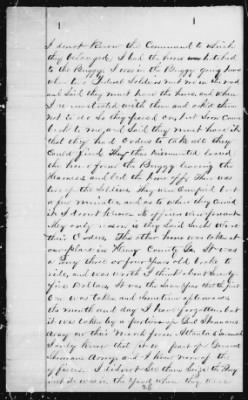 I do not know the Command to which
they belonged, I had the horse hitched
to the Buggy. I was in the Buggy going home
when two Federal Soldiers met me in the road
and Said they must have the horse, and when
I remonstrated with them and asked them
not to do So they passed on, but Soon came
back to me, and Said they must have it
that they had Orders to take all they
Could find. They then unhitched
the horse from the Buggy leaving the
Harness and led the horse off, There was
two of the Soldiers. They were Camped but
a few minutes and as to where they Carried
it I do not Know. No officers were present.
The only reason is they Said Such were
their Orders. The other horse was taken at
our place in Henry County Ga. It was
a Bay three or four year old broke to
ride, and was worth I think about Seventy
five Dollars, It was the Same year that the first
One was taken and Sometime afterwards
the month and day I have forgotten, but
it was taken by a portion of Genl Shermans
Army on their March from Atlanta to Savannah
I only know that it was part of General
Shermans Army and I knew none of the
officers. I did not See them Seize the Bay
but I was in the Yard when they were